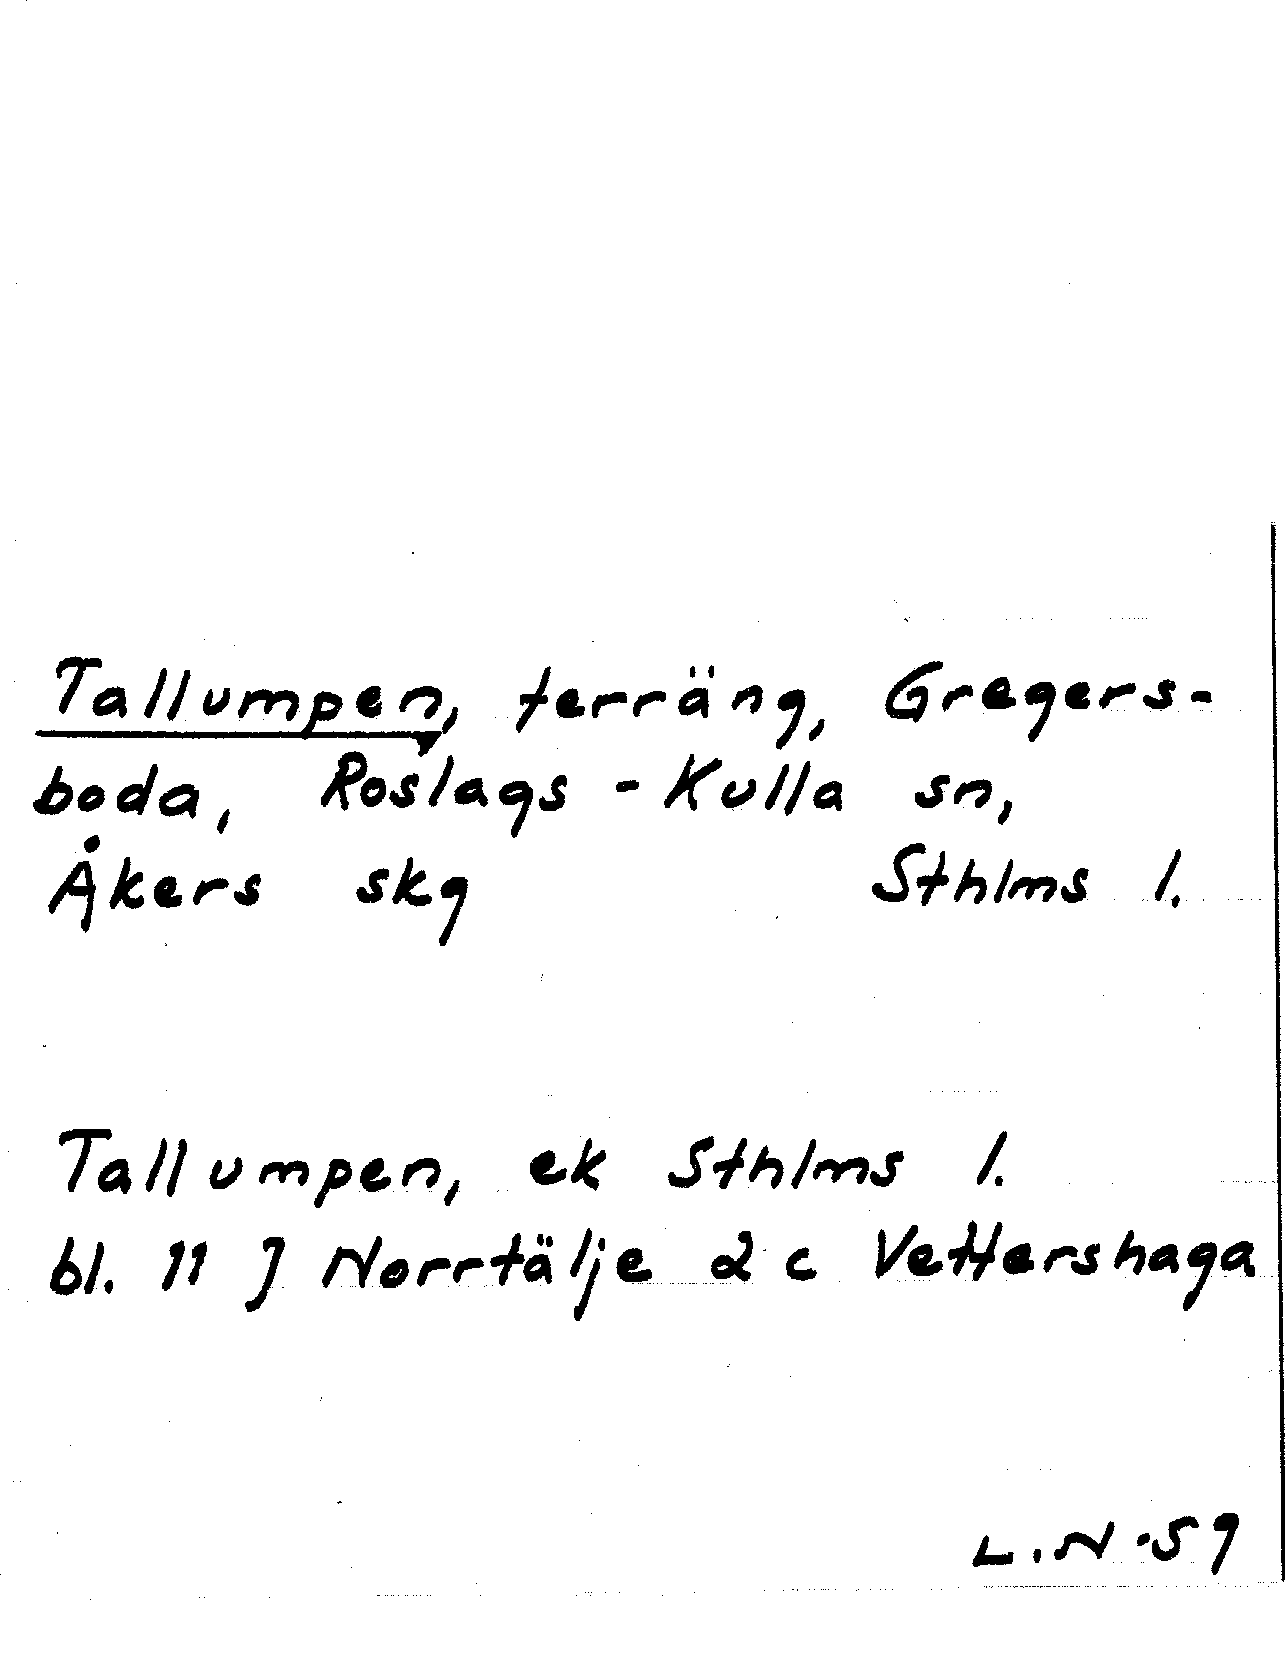 Tallumpen, terräng, Gregers-
boda, Roslags-Kulla sn,
Åkers skg Sthlms l.
Tallumpen, ek Sthlms l.
bl. 11 J Norrtälje 2 c Vettershaga
L.N -59